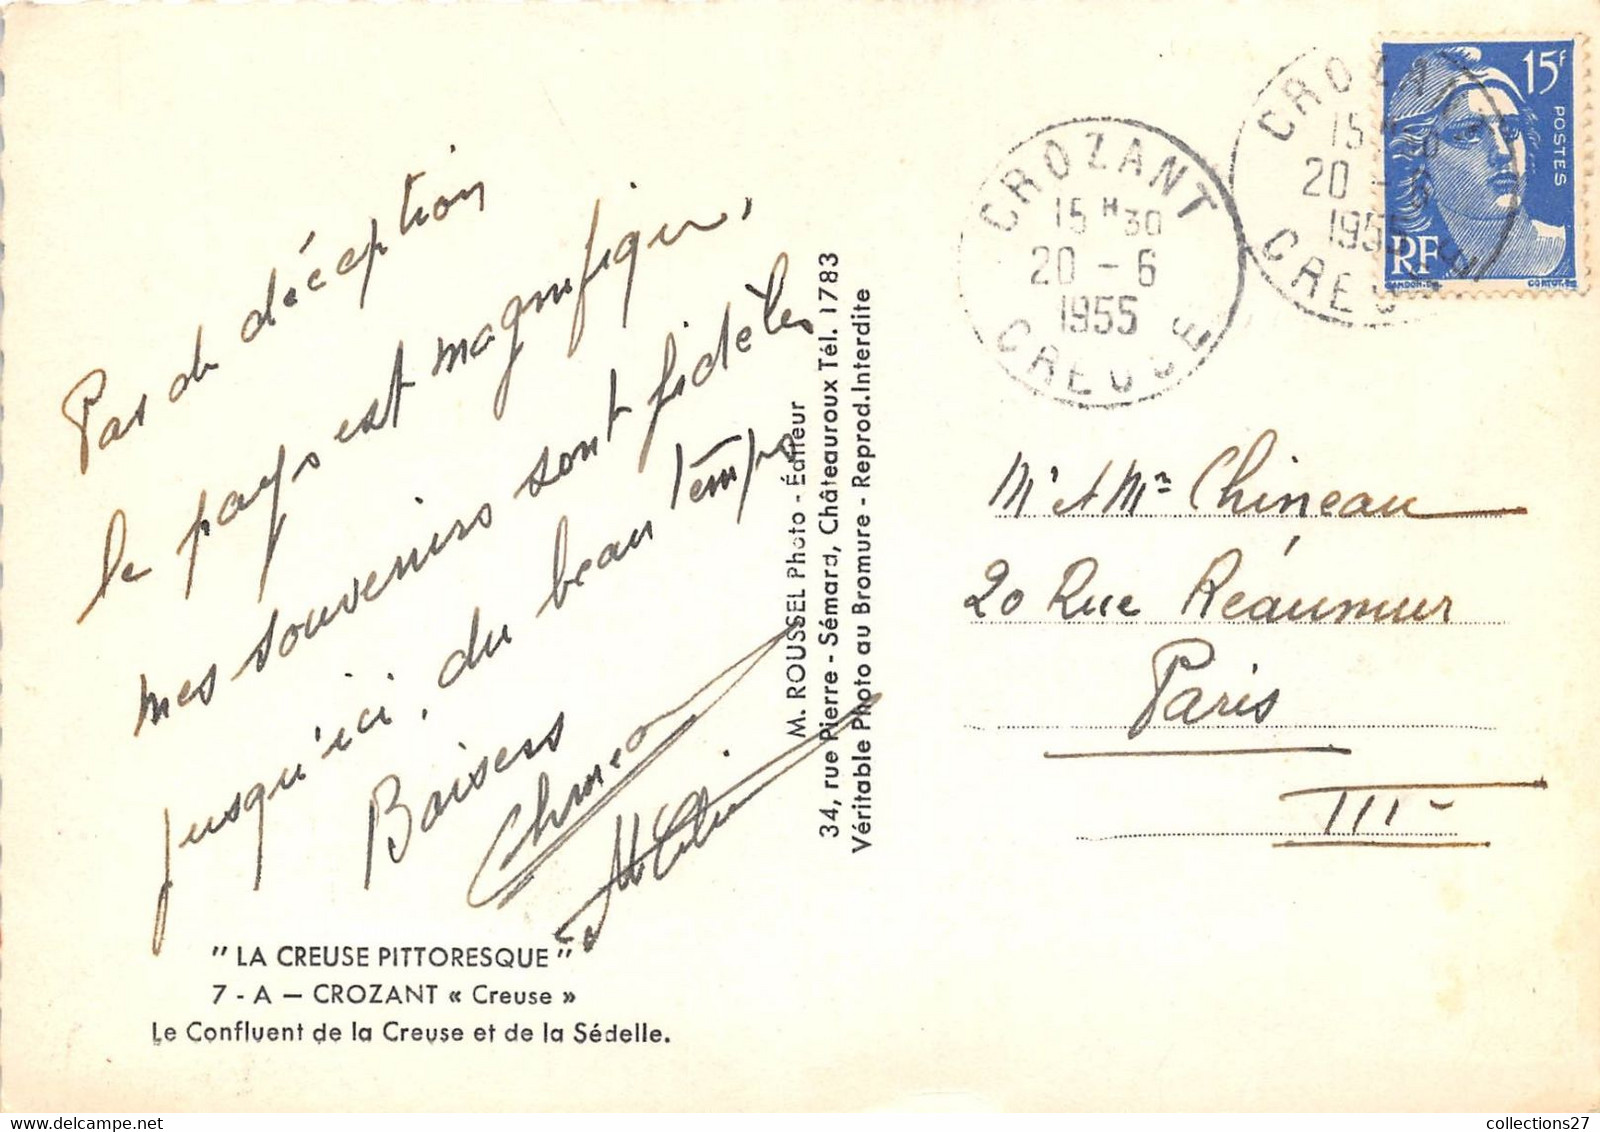 Pas de déception
le pays est magnifique,
mes souvenirs sont fidèles
jusqu'ici, du beau temps
Baisers
"LA CREUSE PITTORESQUE"
7 - A — CROZANT « Creuse »
Le Confluent de la Creuse et de la Sédelle.
M. ROUSSEL Photo - Éditeur
34, rue Pierre - Sémard, Châteauroux Tél. 1783
Véritable Photo au Bromure - Reprod. Interdite
CROZANT
15 H 30
20 - 6
1955
CREUSE
CROZANT
15 H 30
20 - 6
1955
CREUSE
15F
POSTES
RF
GANDON
CORTOT
Mr et Me Chineau
20 Rue Réaumur
Paris
IIIe
collections27